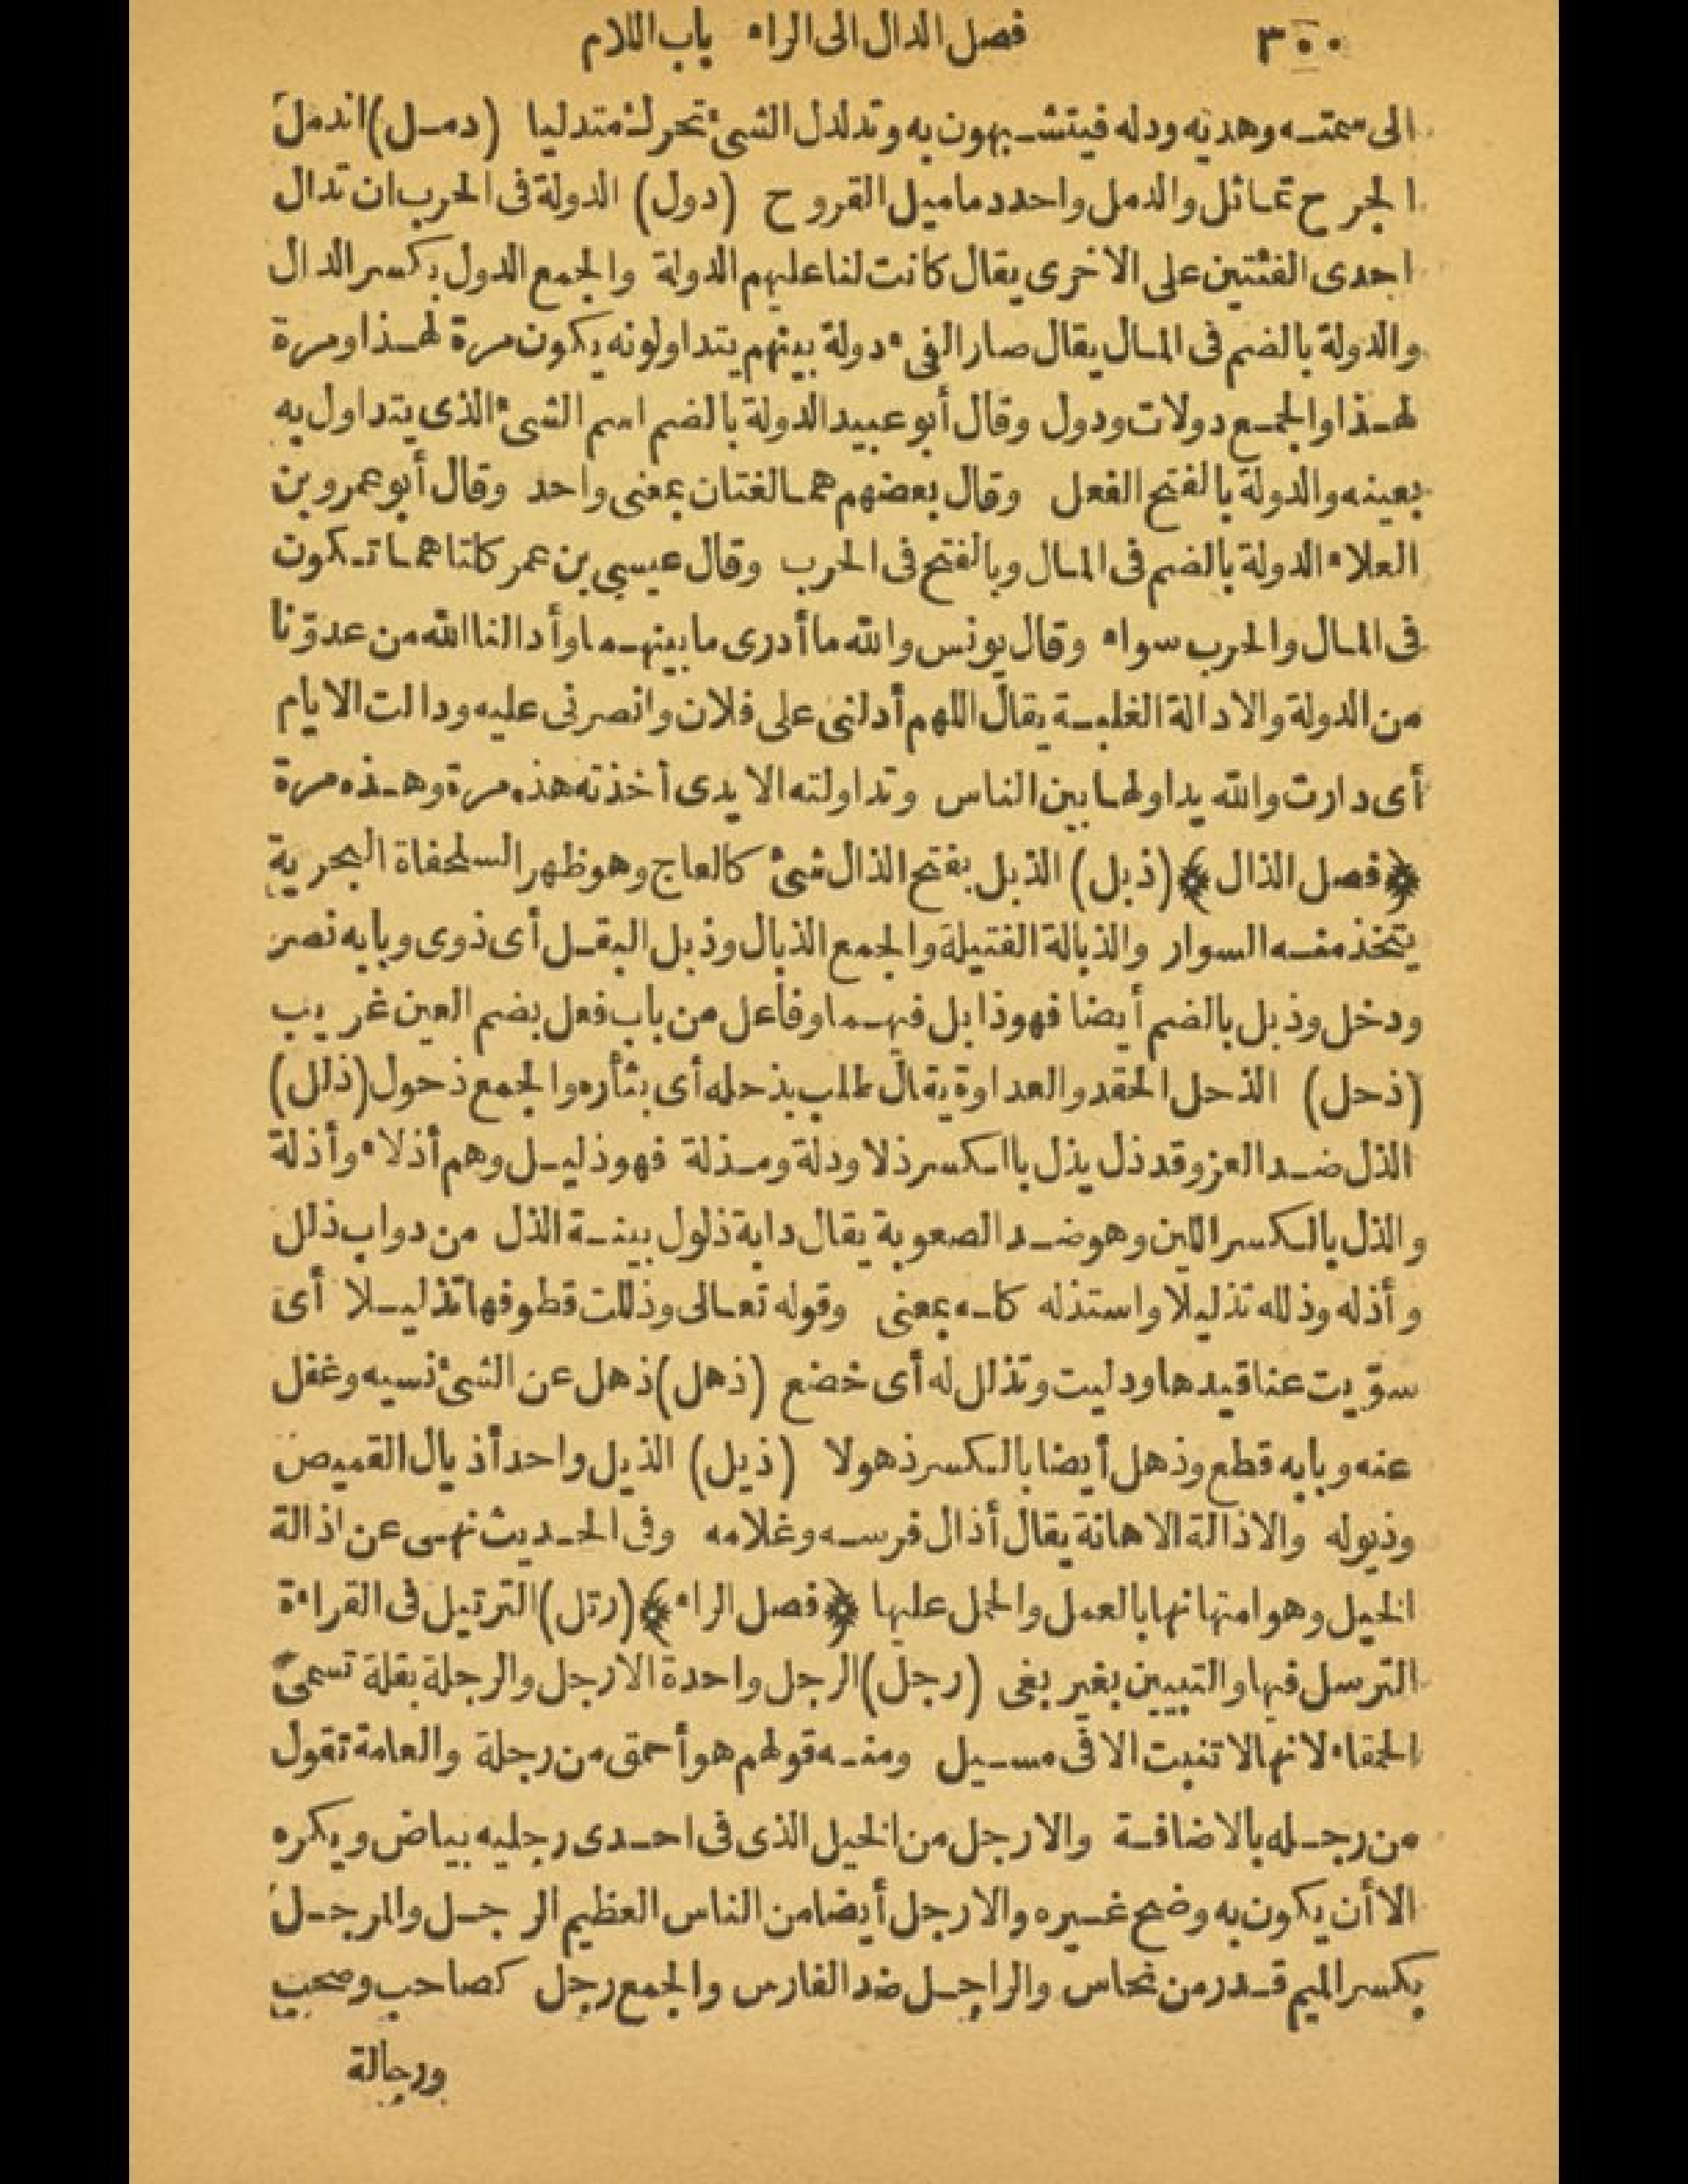 ٣٠٠ فصل الدال الى الراء باب اللام
الى سمته وهديه ودله فيتشبهون به وتدلدل الشىء تحرك متدليا (دمل) اندمل
الجرح تماثل والدمل واحد دماميل القروح (دول) الدولة فى الحرب ان تدال
احدى الفئتين على الاخرى يقال كانت لنا عليهم الدولة والجمع الدول بكسر الدال
والدولة بالضم فى المال يقال صار الفىء دولة بينهم يتداولونه يكون مرة لهذا ومرة
لهذا والجمع دولات ودول وقال أبو عبيد الدولة بالضم اسم الشىء الذى يتداول به
بعينه والدولة بالفتح الفعل وقال بعضهم هما لغتان بمعنى واحد وقال أبو عمرو بن
العلاء الدولة بالضم فى المال وبالفتح فى الحرب وقال عيسى بن عمر كلتاهما تكون
فى المال والحرب سواء وقال يونس والله ما أدرى ما بينهما وأدالنا الله من عدوّنا
من الدولة والادالة الغلبة يقال اللهم أدلنى على فلان وانصرنى عليه ودالت الايام
أى دارت والله يداولها بين الناس وتداولته الايدى أخذته هذه مرة وهذه مرة
﴿فصل الذال﴾ (ذبل) الذبل بفتح الذال شىء كالعاج وهو ظهر السلحفاة البحرية
يتخذ منه السوار والذبالة الفتيلة والجمع الذبال وذبل البقل أى ذوى وبابه نصر
ودخل وذبل بالضم أيضا فهو ذابل فيهما وفاعل من باب فعل بضم العين غريب
(ذحل) الذحل الحقد والعداوة يقال طلب بذحله أى بثأره والجمع ذحول (ذلل)
الذل ضد العز وقد ذل يذل بالكسر ذلا وذلة ومذلة فهو ذليل وهم أذلاء وأذلة
والذل بالكسر اللين وهو ضد الصعوبة يقال دابة ذلول بينة الذل من دواب ذلل
وأذله وذلله تذليلا واستذله كله بمعنى وقوله تعالى وذللت قطوفها تذليلا أى
سوّيت عناقيدها ودليت وتذلل له أى خضع (ذهل) ذهل عن الشىء نسيه وغفل
عنه وبابه قطع وذهل أيضا بالكسر ذهولا (ذيل) الذيل واحد أذيال القميص
وذيوله والاذالة الاهانة يقال أذال فرسه وغلامه وفى الحديث نهى عن اذالة
الخيل وهو امتهانها بالعمل والحمل عليها ﴿فصل الراء﴾ (رتل) الترتيل فى القراءة
الترسل فيها والتبيين بغير بغى (رجل) الرجل واحدة الارجل والرجلة بقلة تسمى
الحمقاء لانها لا تنبت الا فى مسيل ومنه قولهم هو أحمق من رجلة والعامة تقول
من رجله بالاضافة والارجل من الخيل الذى فى احدى رجليه بياض ويكره
الا أن يكون به وضح غيره والارجل أيضا من الناس العظيم الرجل والمرجل
بكسر الميم قدر من نحاس والراجل ضد الفارس والجمع رجل كصاحب وصحب
ورجالة